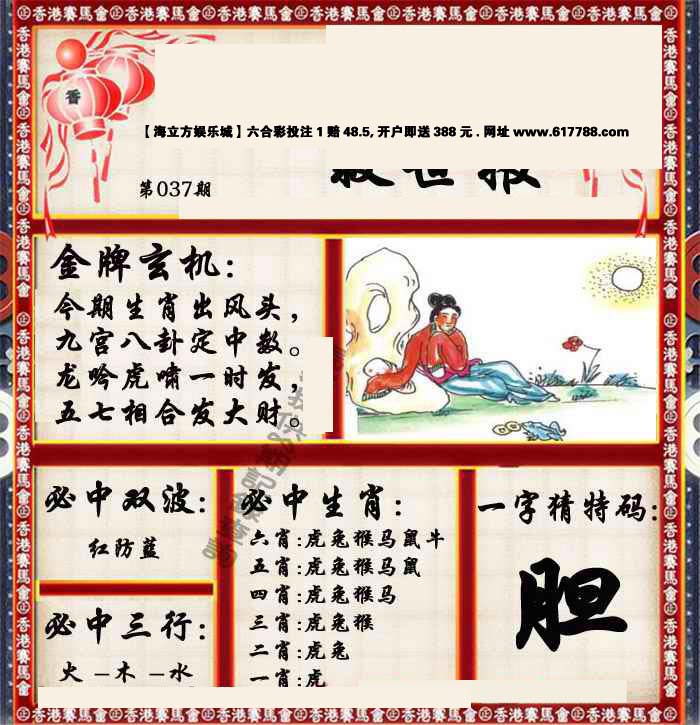 香港賽馬會
香
【海立方娱乐城】六合彩投注 1 赔 48.5, 开户即送 388 元 . 网址 www.617788.com
第037期
金牌玄机：
今期生肖出风头，
九宫八卦定中数。
龙吟虎啸一时发，
五七相合发大财。
必中双波：
红防蓝
必中三行：
火 – 木 – 水
必中生肖：
六肖:虎兔猴马鼠牛
五肖:虎兔猴马鼠
四肖:虎兔猴马
三肖:虎兔猴
二肖:虎兔
一肖:虎
一字猜特码：
胆